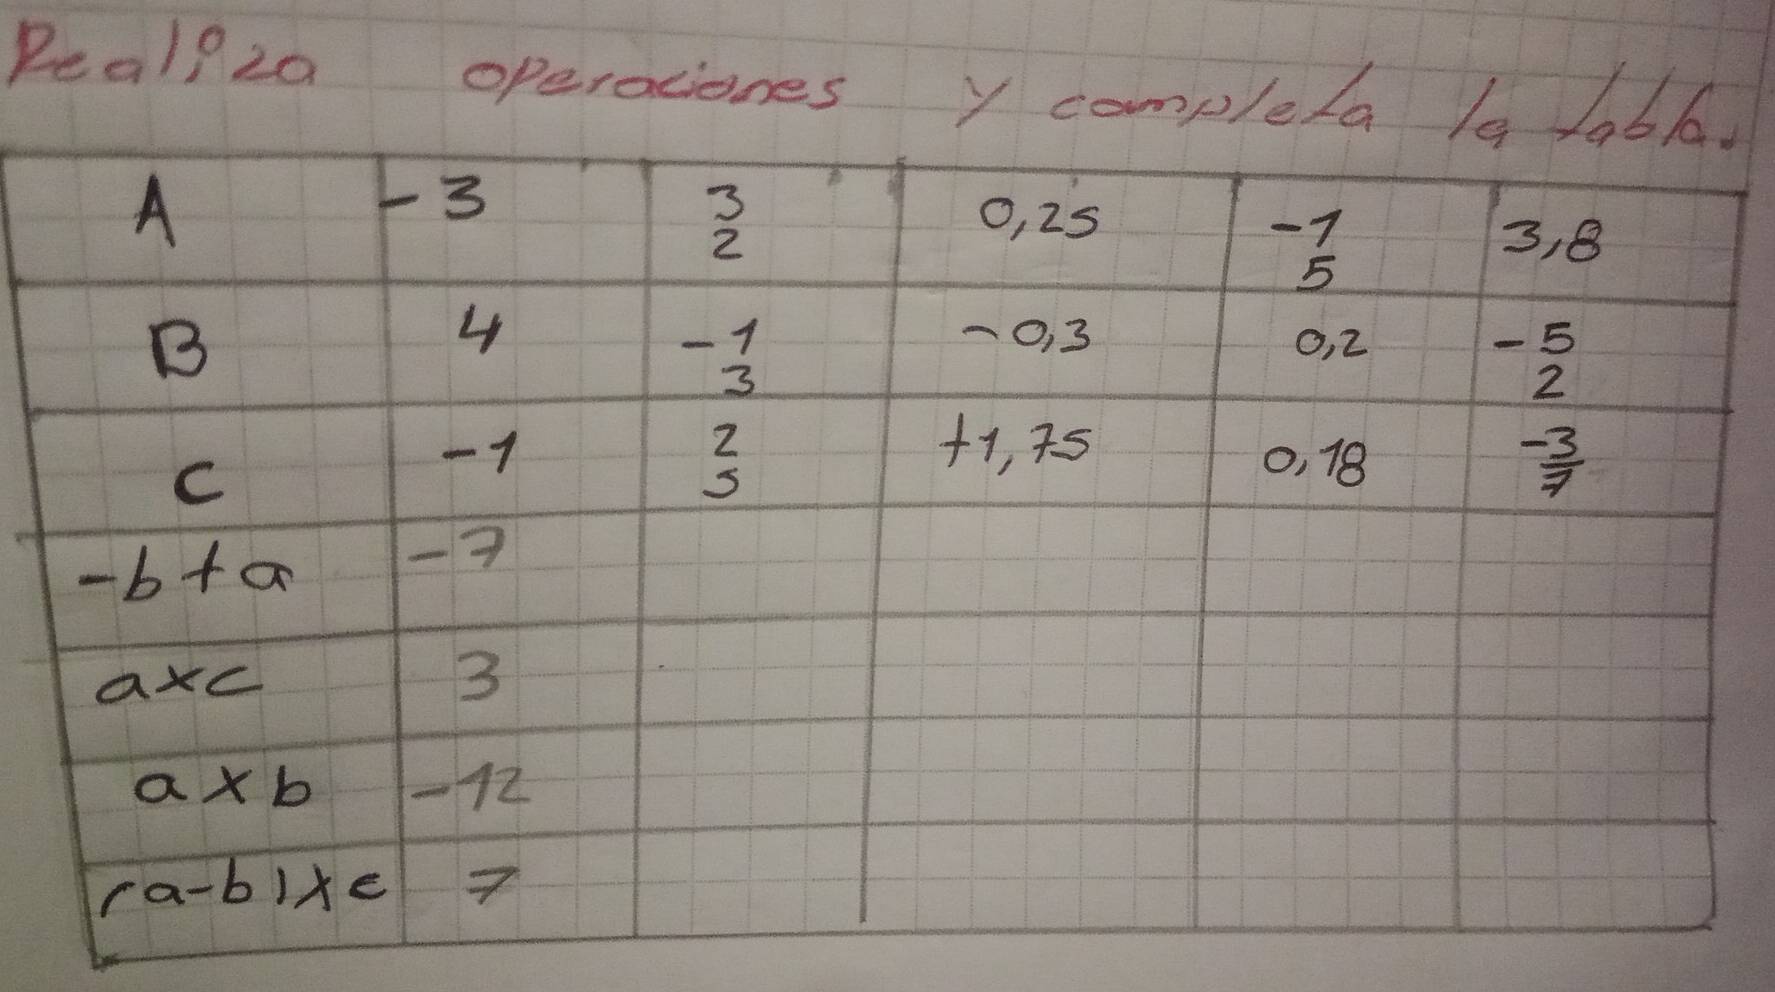 Realiza operaciones y completa la tabla.
A -3 3 0,25 -1 3,8
2 5
B 4 -1 -0,3 0,2 -5
3 2
C -1 2 +1,75 0,18 -3
5 7
-b+a -7
axc 3
axb -12
(a-b)xc 7